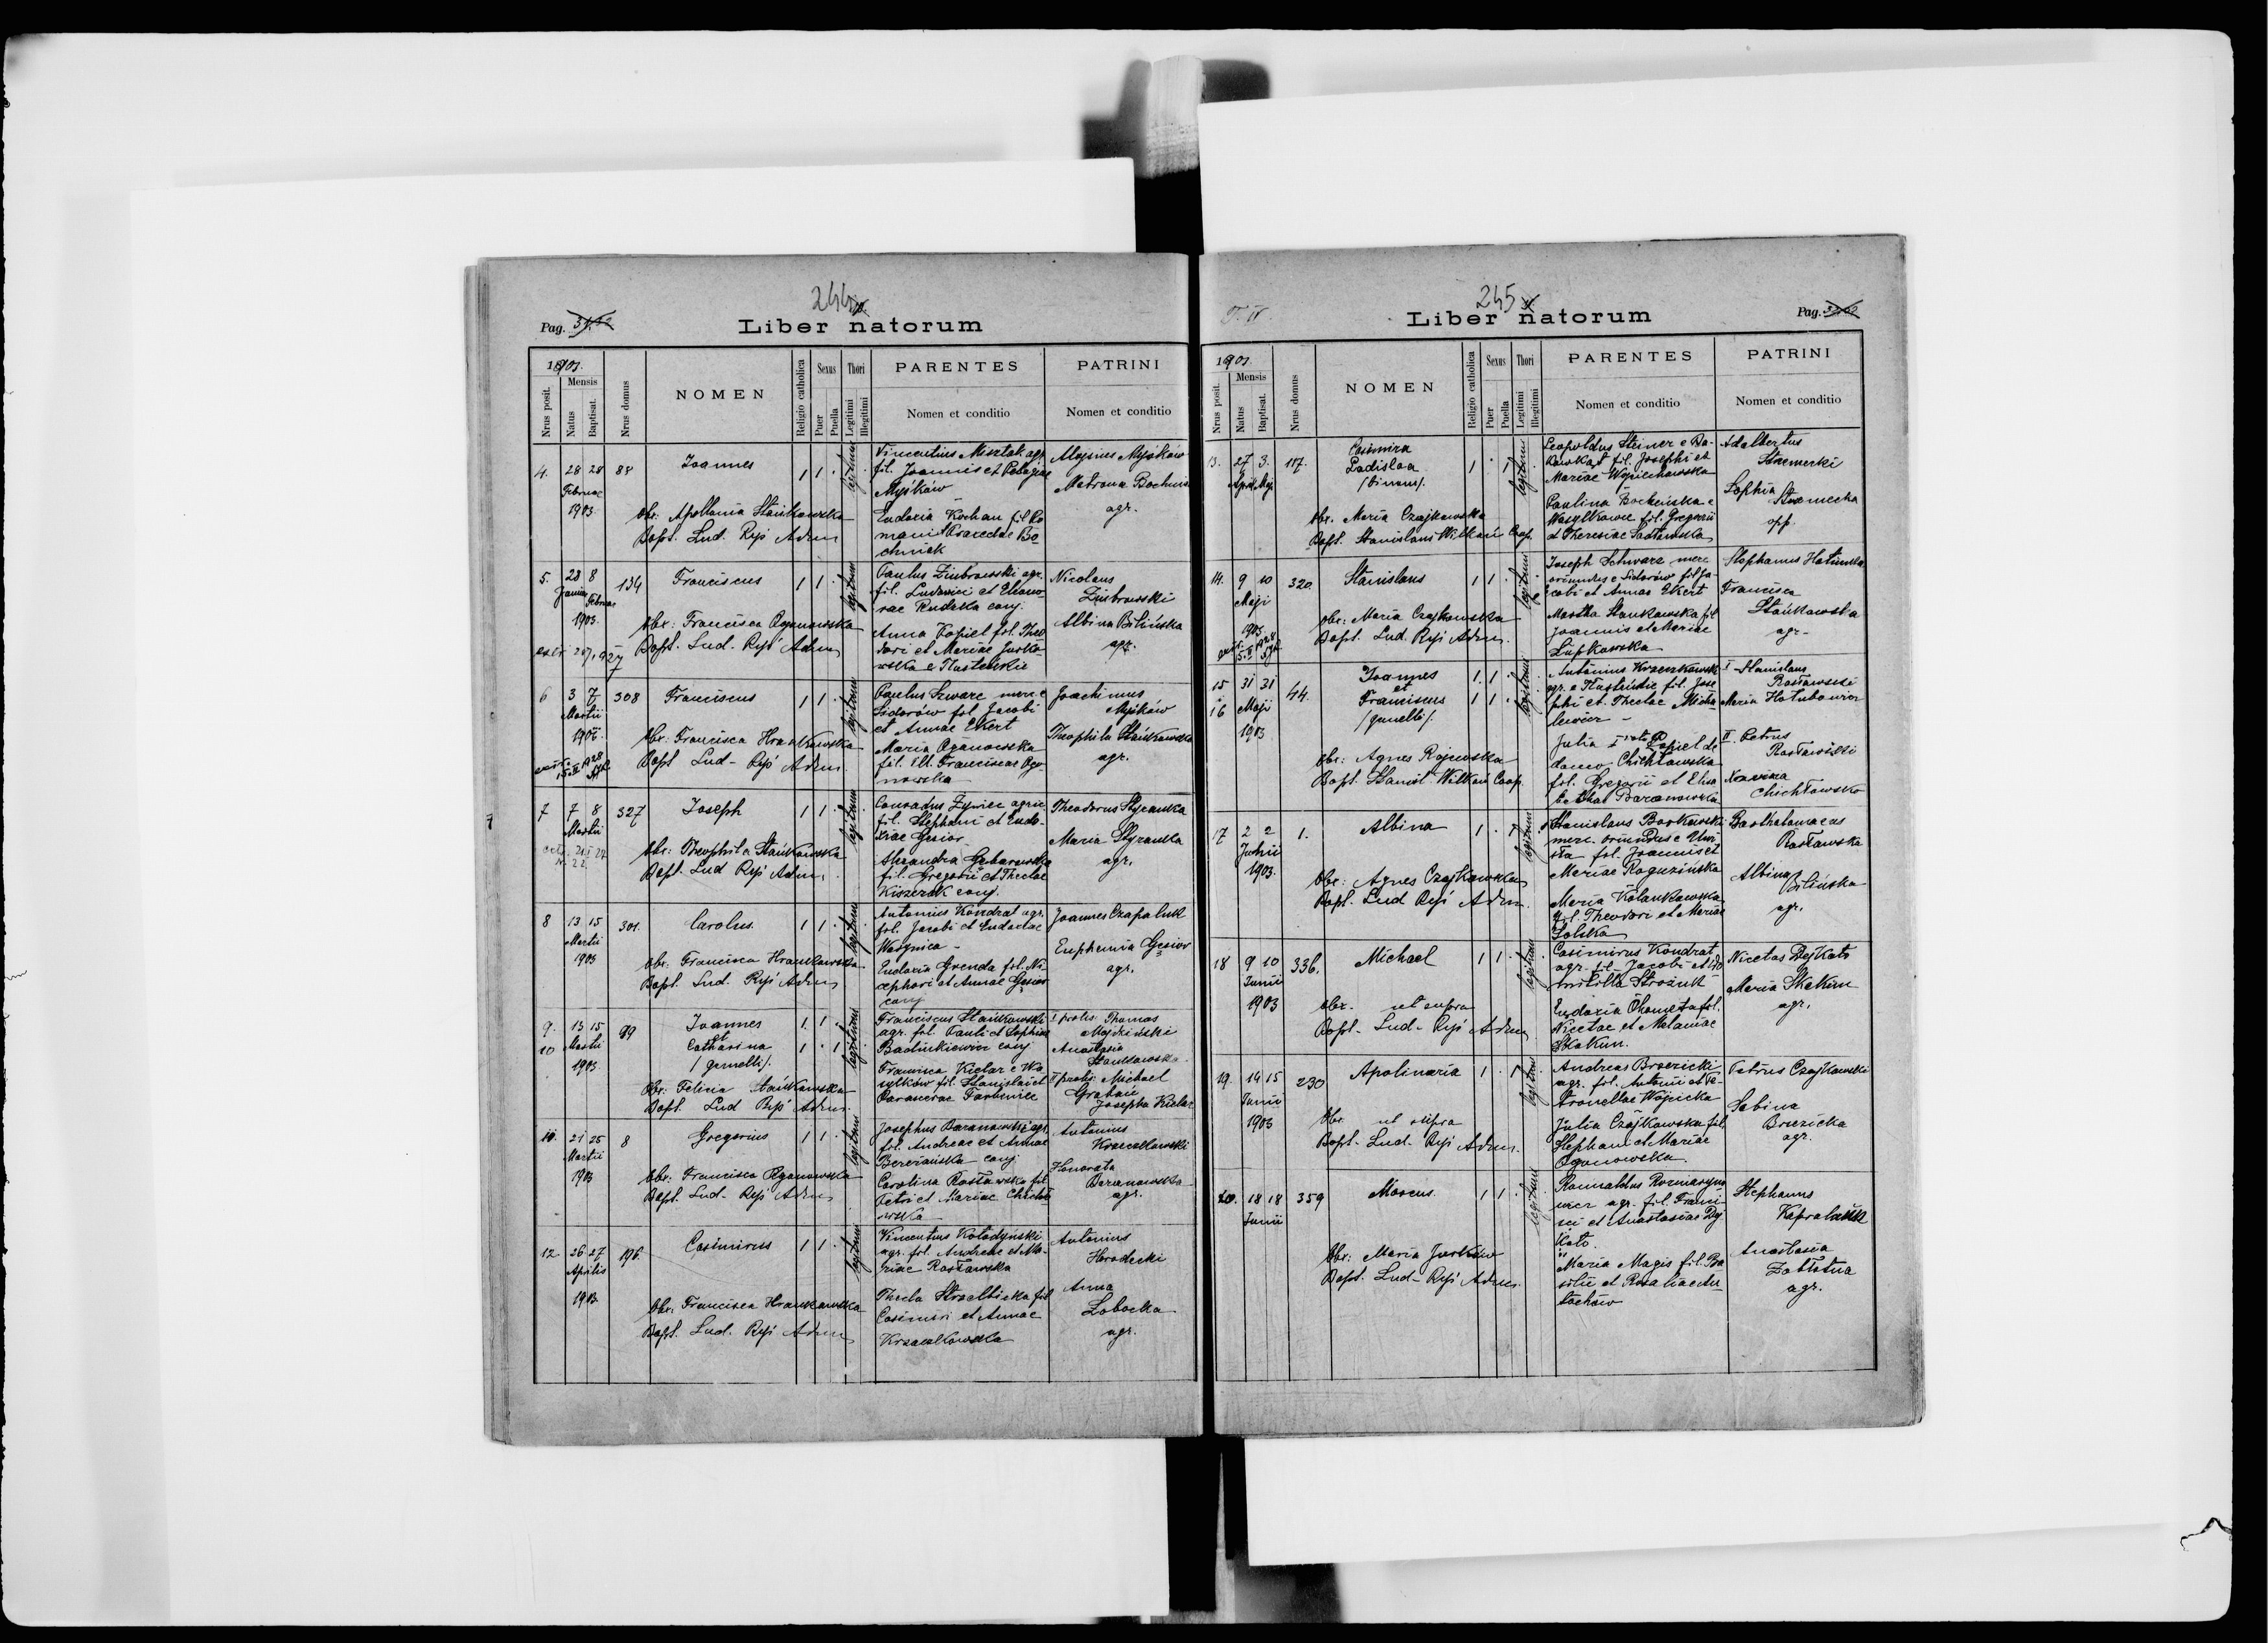 244
Pag.
Liber natorum
1903.
Nrus posit.
Mensis
Natus
Baptisat.
Nrus domus
NOMEN
Religio catholica
Sexus
Puer
Puella
Thori
Legitimi
Illegitimi
PARENTES
Nomen et conditio
PATRINI
Nomen et conditio
4. 28 28 88 Joannes 1 1 legitimus
Februar
1903
Obx: Apollonia Stańkowska
Bapt. Lud. Ryś Adm
Vincentius Misztak agr.
fil. Joannis et Pelagiae
Myśków
Eudoxia Kochan fil. Ro
mani et Praxedae Bo
chniak
Aloysius Myśków
Matrona Bochniak
agr.
5. 28 8 134 Franciscus 1 1 legitimus
Januar Februar
1903.
Obx: Francisca Oganowska
Bapt. Lud. Ryś Adm
Paulus Ziubrowski agr.
fil. Ludovici et Eleono
rae Rudzka conj.
Anna Kopiel fil. Theo
dori et Mariae Jurko
wska e Tłusteńkie
Nicolaus
Ziubrowski
Albina Bilińska
agr.
6 3 7 308 Franciscus 1 1 legitimus
Martii
Obx: Francisca Hrankowska
Bapt Lud. Ryś Adm.
Paulus Szwarc merc. e
Sidorów fil Jacobi
et Annae Ekert
Maria Oganowska
fil. Franciscae Oga
nowska
Joachimus
Myśków
Theophila Stańkowska
agr.
7 7 8 327 Joseph 1 1 legitimus
Martii
Obx: Theophila Stańkowska
Bapt. Lud Ryś Adm.
Conradus Żywiec agric.
fil. Stephani et Eudo
xiae Gęsior
Alexandra Gebarowska
fil. Gregorii et Theclae
Kiszczak conj.
Theodorus Styranka
Maria Styranka
agr.
8 13 15 301. Carolus 1 1 legitimus
Martii
1903
Obx: Francisca Hrankowska
Bapt. Lud. Ryś Adm
Antonius Kondrat agr.
fil. Jacobi et Eudoxiae
Eudoxia Grenda fil. Ni
cephori et Annae Gęsior
conj
Joannes Czapaluk
Euphemia Gęsior
agr.
9. 13 15 99 Joannes 1. 1 legitimus
10 Martii et
1903. Catharina 1 1
/gemelli/.
Obx: Felicia Stańkowska
Bapt. Lud Ryś Adm.
Franciscus Stańkowski
agr. fil. Pauli et Sophiae
conj
Francisca Kielar e Wa
sylków fil. Stanislai et
I proles: Thomas
Anastasia
Stańkowska
II proles: Michael
Josepha Kielar
21 25 8 Gregorius 1 1 legitimus
Martii
1903
Obx: Francisca Oganowska
Bapt. Lud. Ryś Adm
Josephus Baranowski agr.
fil. Andreae et Annae
Bereżańska conj.
Carolina Rosławska fil
Petri et Mariae Chichło
wska
Antonius
Krzeczkowski
Honorata
Baranowska
agr.
12 26 27 196 Casimirus 1 1 legitimus
Aprilis
1903
Obx: Francisca Hrankowska
Bapt. Lud. Ryś Adm
Vincentius Kołodyński
agr. fil. Andreae et Ma
riae Rosławska
Thecla Strzelbicka fil
Casimiri et Annae
Krzeczkowska
Antonius
Horodecki
Anna
Łobocka
agr.
245
T. IV.
Liber natorum
Pag.
1903.
Nrus posit.
Mensis
Natus
Baptisat.
Nrus domus
NOMEN
Religio catholica
Sexus
Puer
Puella
Thori
Legitimi
Illegitimi
PARENTES
Nomen et conditio
PATRINI
Nomen et conditio
13. 27 3. 117. Casimira
Ladislaa 1 1 legitimus
April Maji /binom/.
Obx. Maria Czajkowska
Bapt. Stanislaus Wilkoń Coop.
Leopoldus Steiner e
fil. Josephi et
Mariae Wojciechowska
Paulina
Wasylkowce fil. Gregorii
et Theresiae Sadłowska
Adalbertus
Sophia
opp.
14. 9 10 320 Stanislaus 1 1 legitimus
Maji
1903.
Obx: Maria Czajkowska
Bapt. Lud. Ryś Adm.
Joseph Schwarz merc
oriundus e Sidorów fil Ja
cobi et Annae Ekert
Martha Stańkowska fil
Joannis et Mariae
Łupkowska
Stephanus
Francisca
Stańkowska
agr.
15 31 31 44. Joannes 1. 1 legitimi
et
16 Maji Franciscus 1 1
1903 /gemelli/.
Obx: Agnes Rajewska
Bapt. Stanisl. Wilkoń Coop.
Antonius Krzeczkowski
agr. e Tłusteńkie fil. Jose
phi et Theclae Micha
lewicz
Julia Kopiel de
domo Chichłowska
fil. Gregorii et Elisa
bethae Baranowska
I Stanislaus
Rosławski
Maria Hołubowicz
II. Petrus
Rosławski
Xaveria
Chichłowska
17 2 2 1. Albina 1 1 legitimus
Junii
1903.
Obx: Agnes Czajkowska
Bapt. Lud Ryś Adm.
Stanislaus Borkowski
merc. oriundus e
fil. Joannis et
Mariae Roguzińska
Maria
fil. Theodori et Mariae
Solska
Bartholomaeus
Rosławska
Albina
Bilińska
agr.
18 9 10 336. Michael 1 1 legitimus
Junii
1903
Obx. ut supra
Bapt. Lud. Ryś Adm
Casimirus Kondrat
agr. fil. Jacobi et Do
Eudoxia fil.
Nicetae et Melaniae
Skakun.
Nicetas Dyjkato
Maria Skakun
agr.
19. 14 15 230 Apolinaria 1 1 legitimus
Junii
1903
Obx. ut supra
Bapt. Lud. Ryś Adm.
Andreas Brzezicki
agr. fil. Antonii et Pe
tronellae Wójcicka
Julia Czajkowska fil.
Stephani et Mariae
Oganowska.
Petrus Czajkowski
Sabina
Brzezicka
agr.
20. 18 18 359 Marcus 1 1 legitimus
Junii
Obx: Maria Jurków
Bapt. Lud. Ryś Adm.
Romualdus Rozmaryno
wicz agr. fil. Franci
sci et Anastasiae Dyj
kato
Maria Magis fil. Ba
silii et Rosaliae An
tochów
Stephanus
Kapraluk
Anastasia
agr.